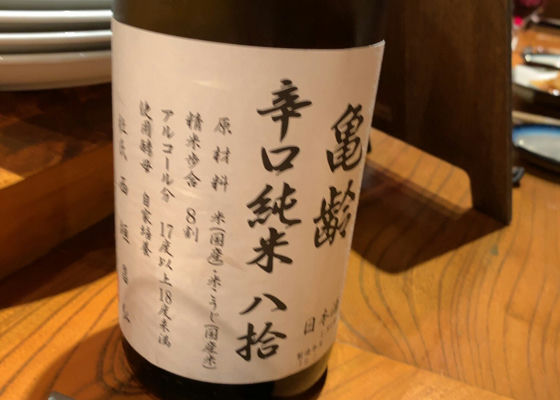 亀齢
辛口純米 八拾
日本酒
原材料 米(国産)・米こうじ(国産米)
精米歩合 8割
アルコール分 17度以上18度未満
使用酵母 自家培養
杜氏 西垣昌弘